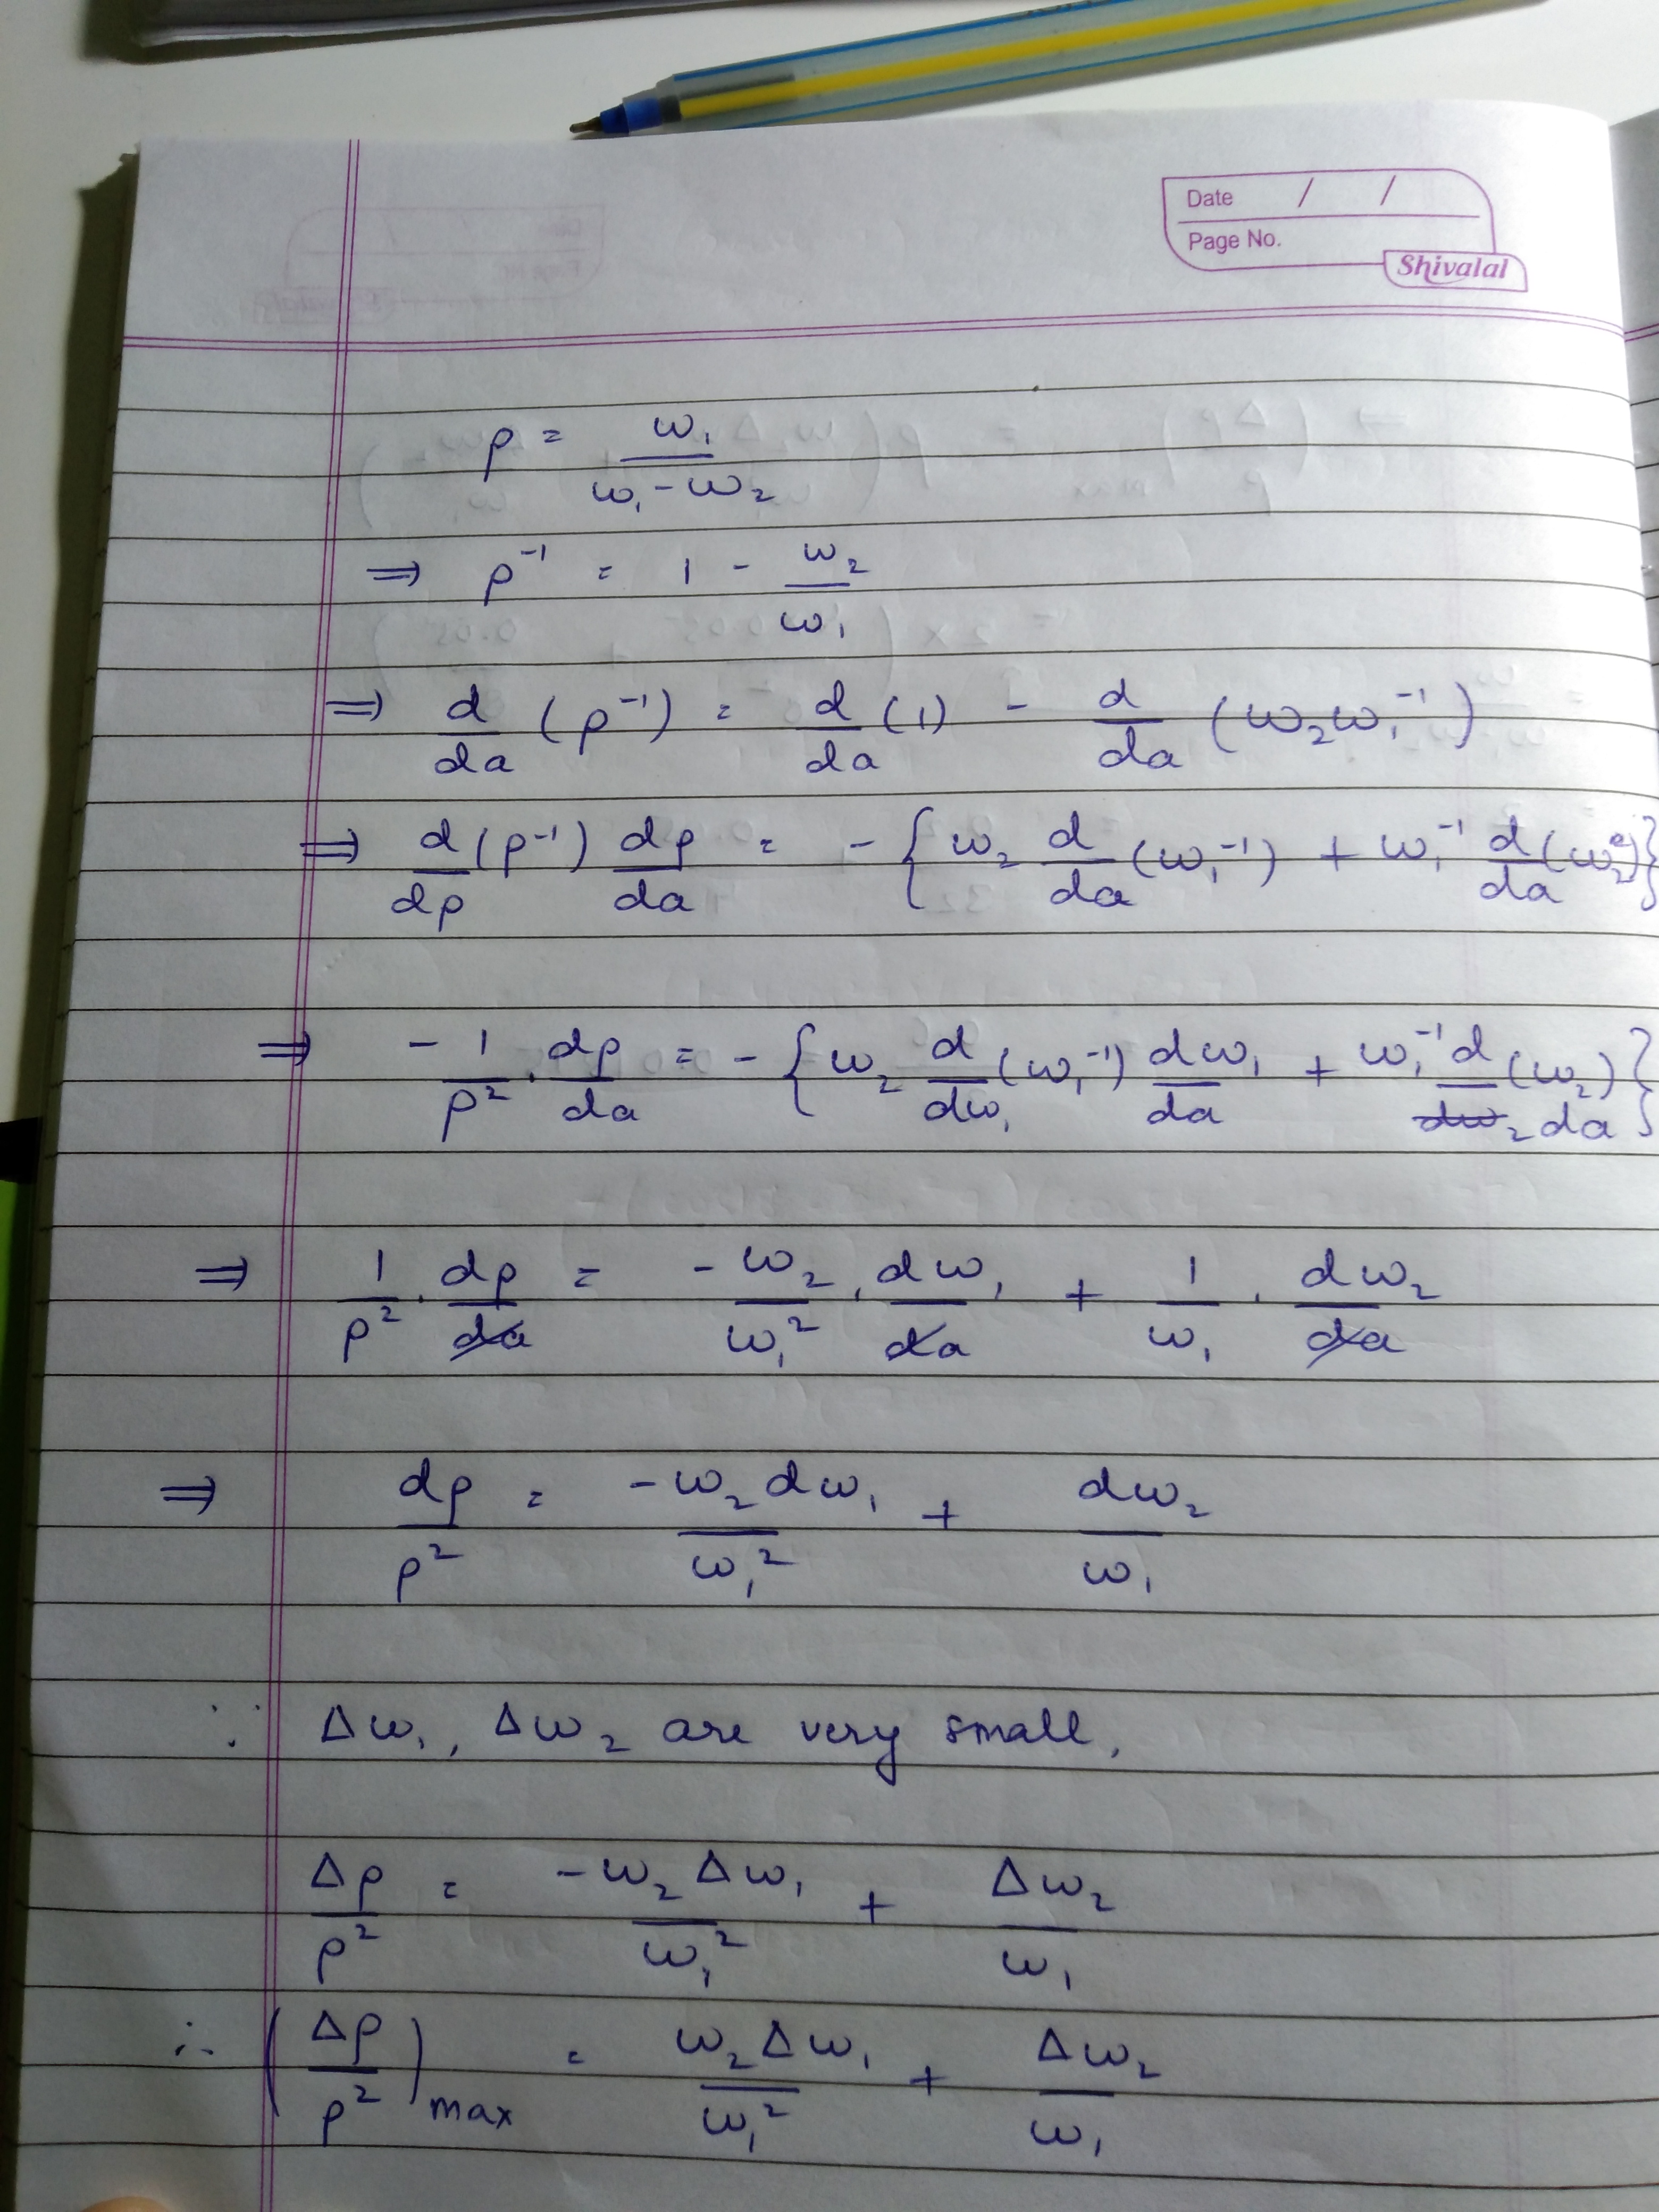 Date / /
Page No.
Shivalal
ρ = ω₁ / (ω₁ - ω₂)
⇒ ρ⁻¹ = 1 - ω₂/ω₁
⇒ d/da (ρ⁻¹) = d/da (1) - d/da (ω₂ω₁⁻¹)
⇒ d/dρ (ρ⁻¹) dρ/da = - {ω₂ d/da (ω₁⁻¹) + ω₁⁻¹ d/da (ω₂)}
⇒ - 1/ρ² . dρ/da = - {ω₂ d/dω₁ (ω₁⁻¹) dω₁/da + ω₁⁻¹ d/da (ω₂)}
⇒ 1/ρ² . dρ/da = - ω₂/ω₁² . dω₁/da + 1/ω₁ . dω₂/da
⇒ dρ/ρ² = -ω₂dω₁/ω₁² + dω₂/ω₁
∵ Δω₁, Δω₂ are very small,
Δρ/ρ² = -ω₂Δω₁/ω₁² + Δω₂/ω₁
∴ (Δρ/ρ²)max = ω₂Δω₁/ω₁² + Δω₂/ω₁